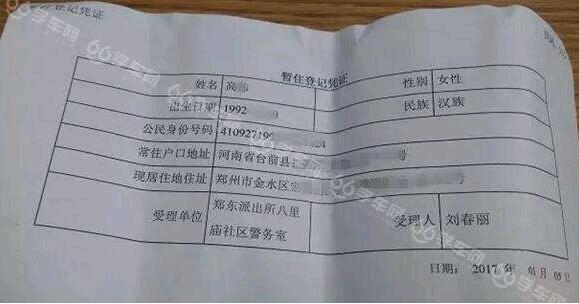 登记凭证
暂住登记凭证
姓名 高 性别 女性
出生日期 1992 民族 汉族
公民身份号码 410927199
常住户口地址 河南省台前县 号
现居住地住址 郑州市金水区 号
受理单位 郑东派出所八里 受理人 刘春丽
庙社区警务室
日期: 2017 年 01 月 05 日
66学车网
66学车网
66学车网
66学车网